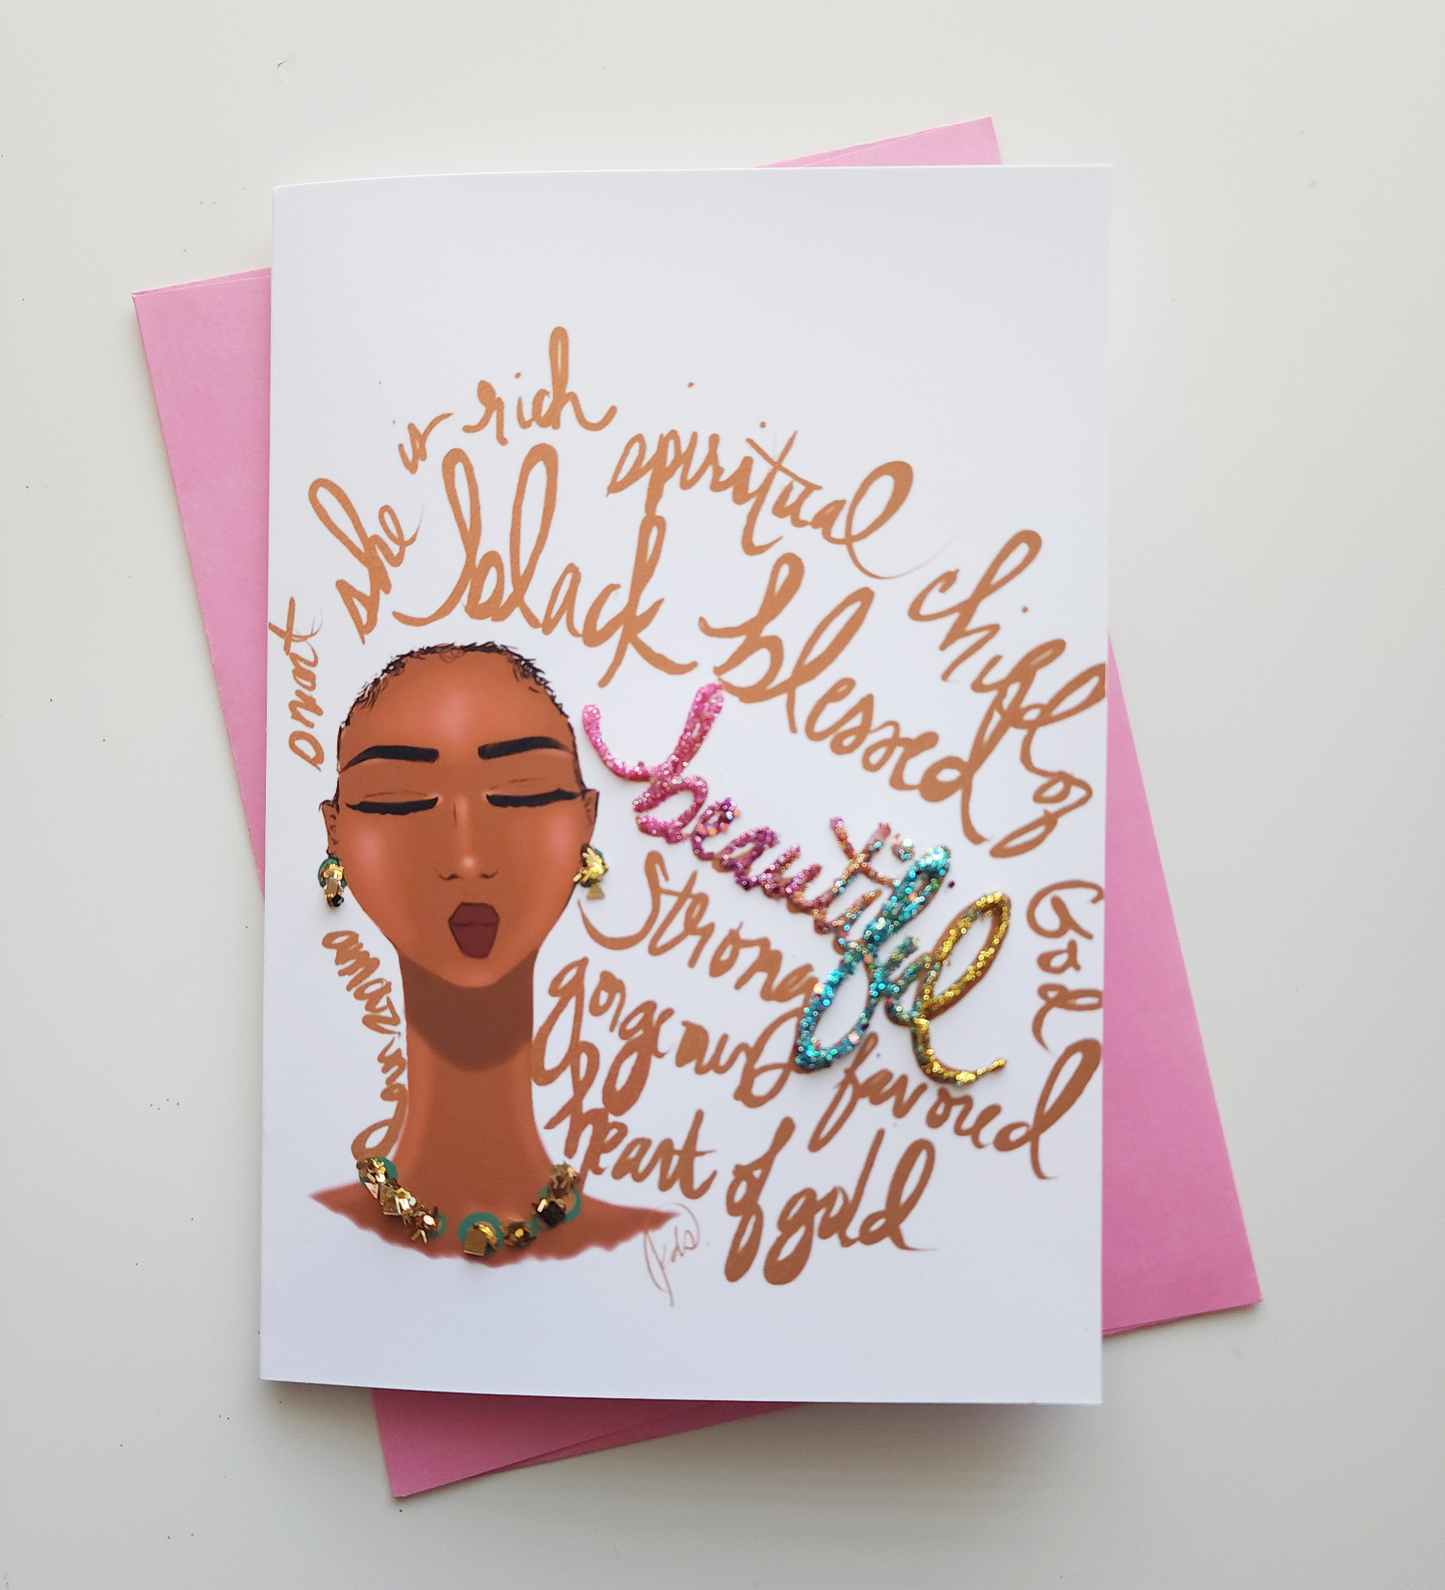 she is rich
spiritual
child of
God
black blessed
beautiful
Strong
gorgeous
favored
heart of gold
amazing